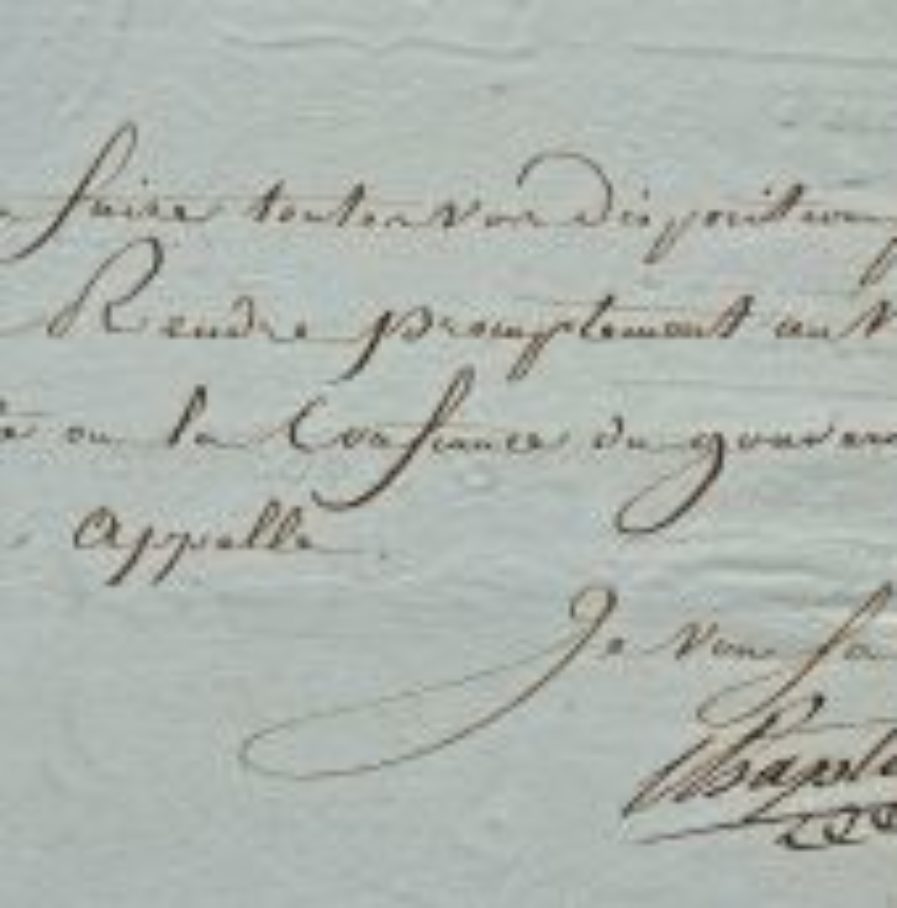 faire toutes vos dispositions
Rendre promptement au
où la Confiance du gouver
Appellé.
Je vous sa
Chapta